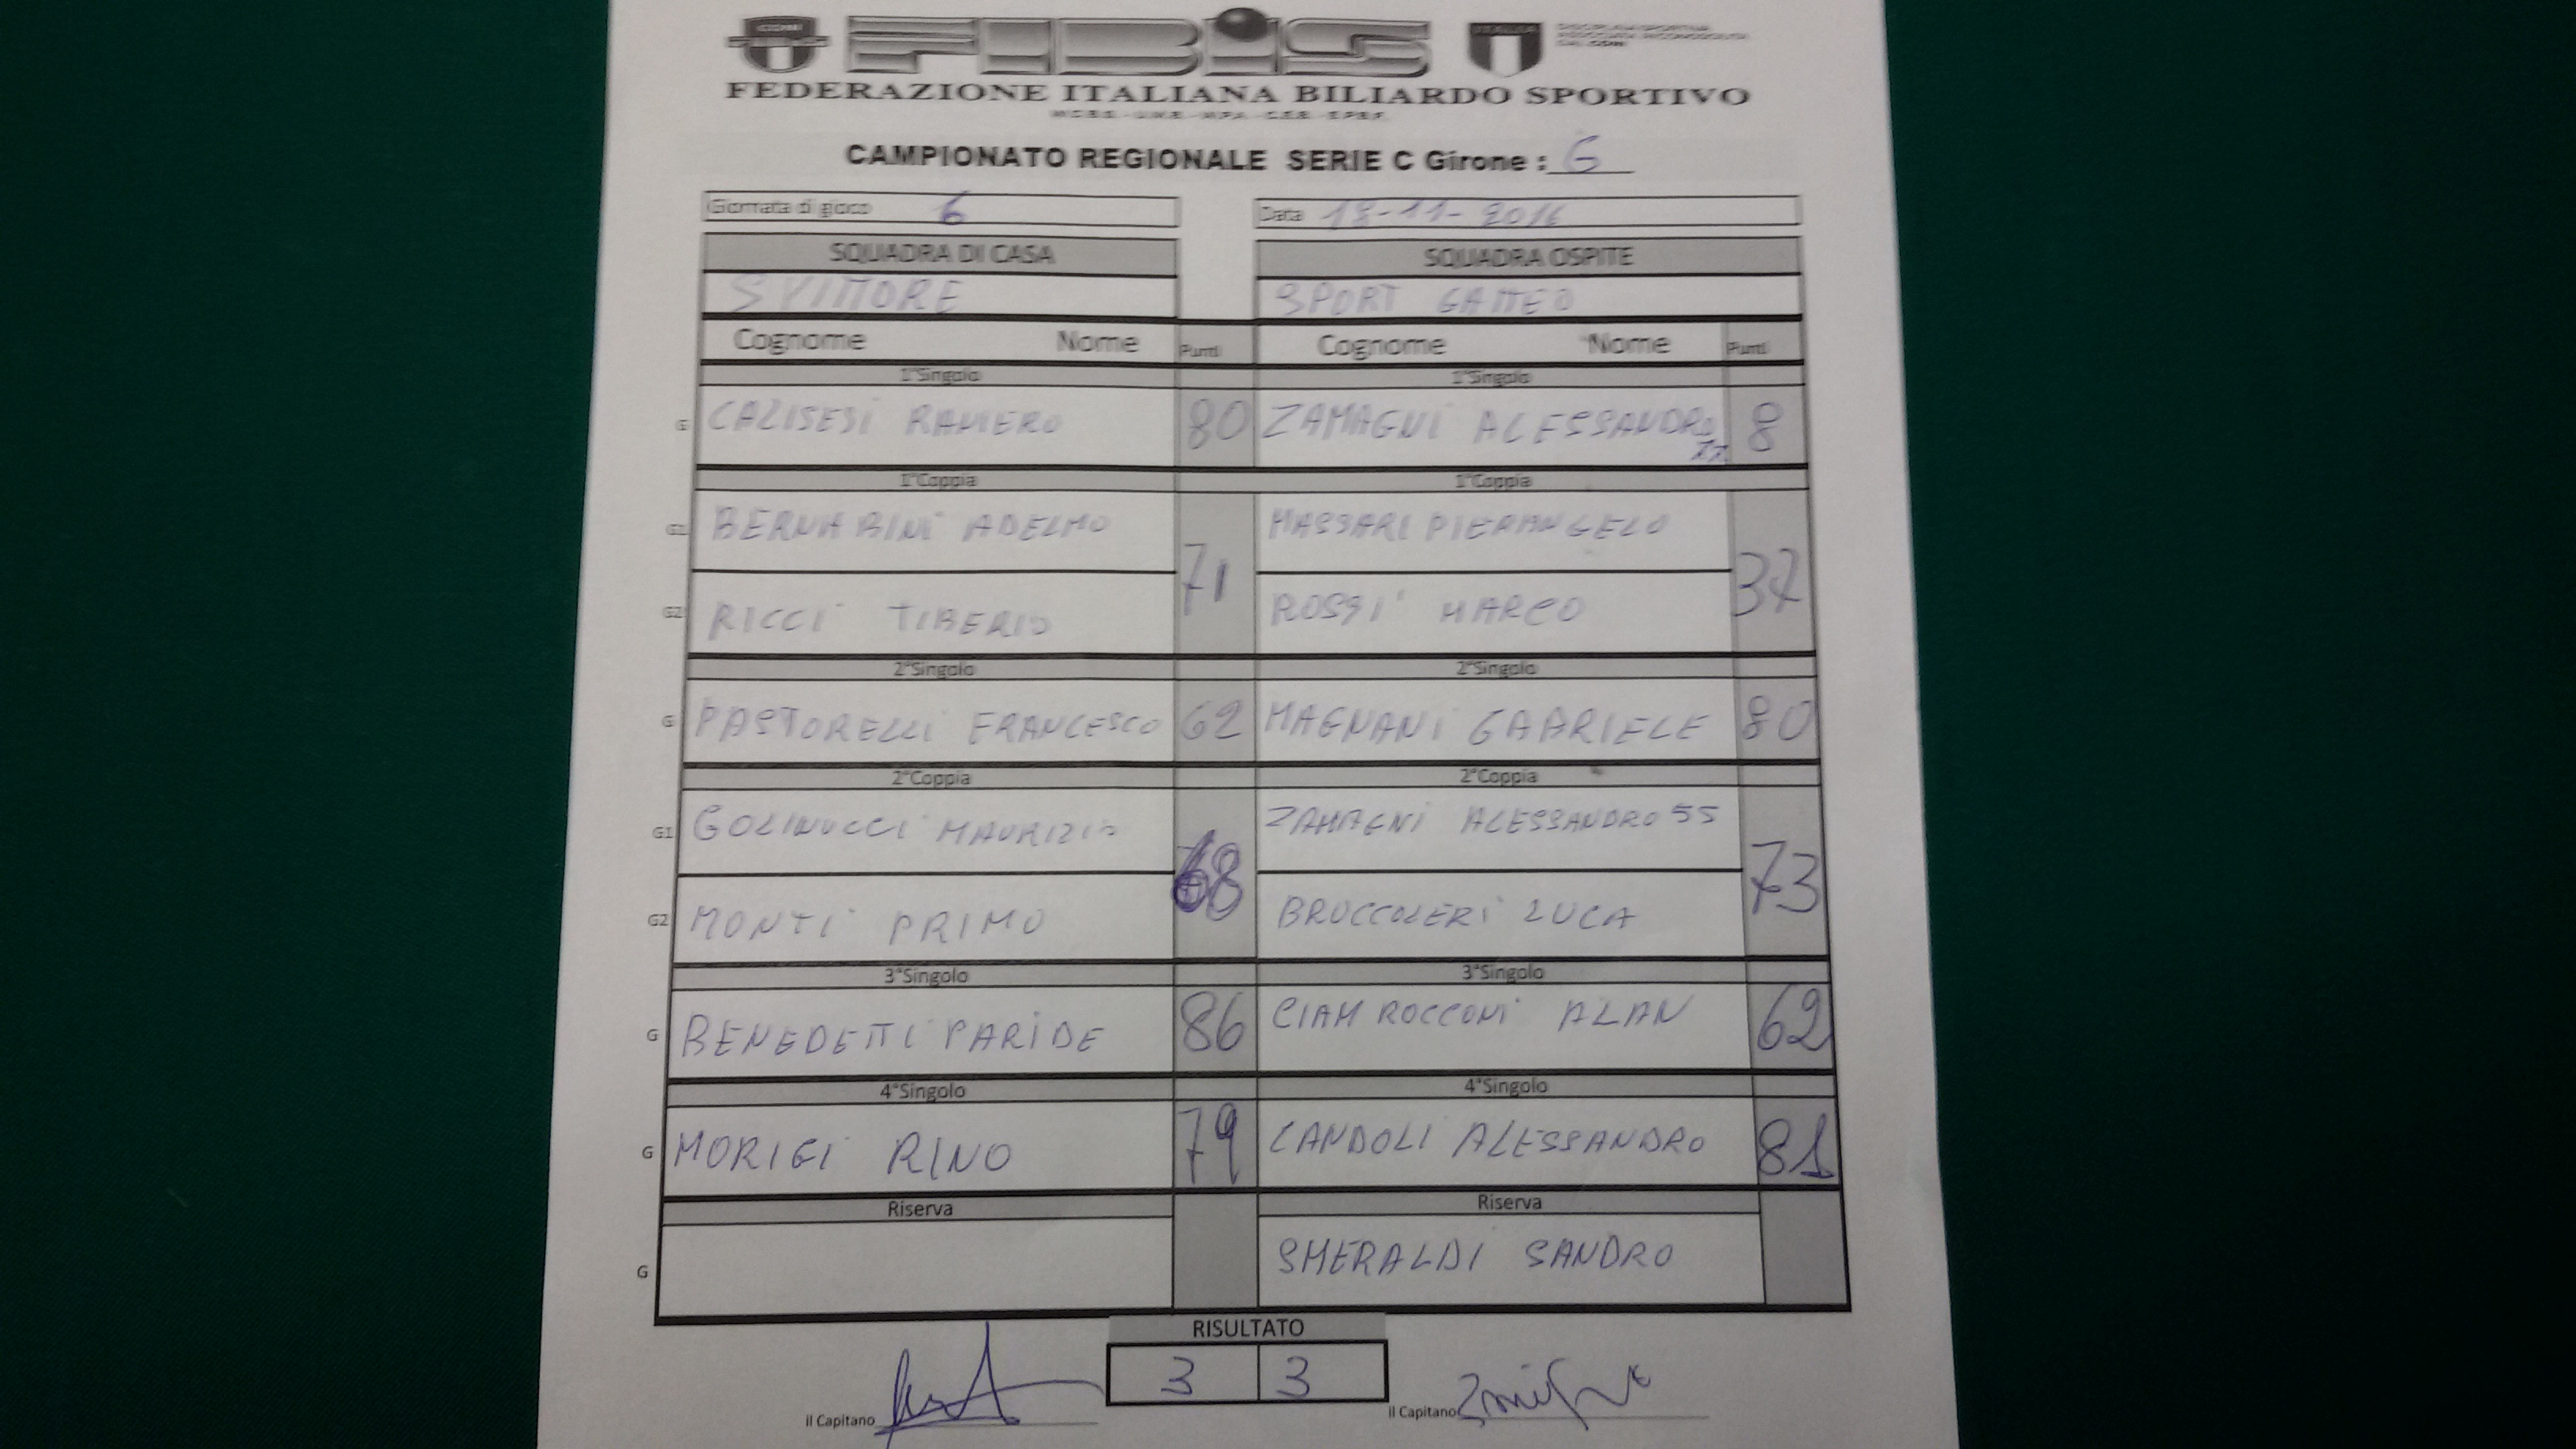 FIBiS
CONI
ITALIA
DISCIPLINA SPORTIVA
ASSOCIATA RICONOSCIUTA
DAL CONI
FEDERAZIONE ITALIANA BILIARDO SPORTIVO
CAMPIONATO REGIONALE SERIE C Girone : G
Giornata di gioco 6 Data 18-11-2016
SQUADRA DI CASA SQUADRA OSPITE
S VITTORE SPORT GATTEO
Cognome Nome Punti Cognome Nome Punti
1°Singolo 1°Singolo
G CALISESI RANIERO 80 ZAMAGNI ALESSANDRO 77 8
1°Coppia 1°Coppia
G1 BERNABINI ADELMO 71 MASSARI PIERANGELO 37
G2 RICCI TIBERIO ROSSI MARCO
2°Singolo 2°Singolo
G PASTORELLI FRANCESCO 62 MAGNANI GABRIELE 80
2°Coppia 2°Coppia
G1 GOLINUCCI MAURIZIO 68 ZAMAGNI ALESSANDRO 55 73
G2 MONTI PRIMO BRUCCOLERI LUCA
3°Singolo 3°Singolo
G BENEDETTI PARIDE 86 CIAMROCCONI ALAN 62
4°Singolo 4°Singolo
G MORIGI RINO 79 CANDOLI ALESSANDRO 81
Riserva Riserva
G SMERALDI SANDRO
RISULTATO
3 3
il Capitano il Capitano